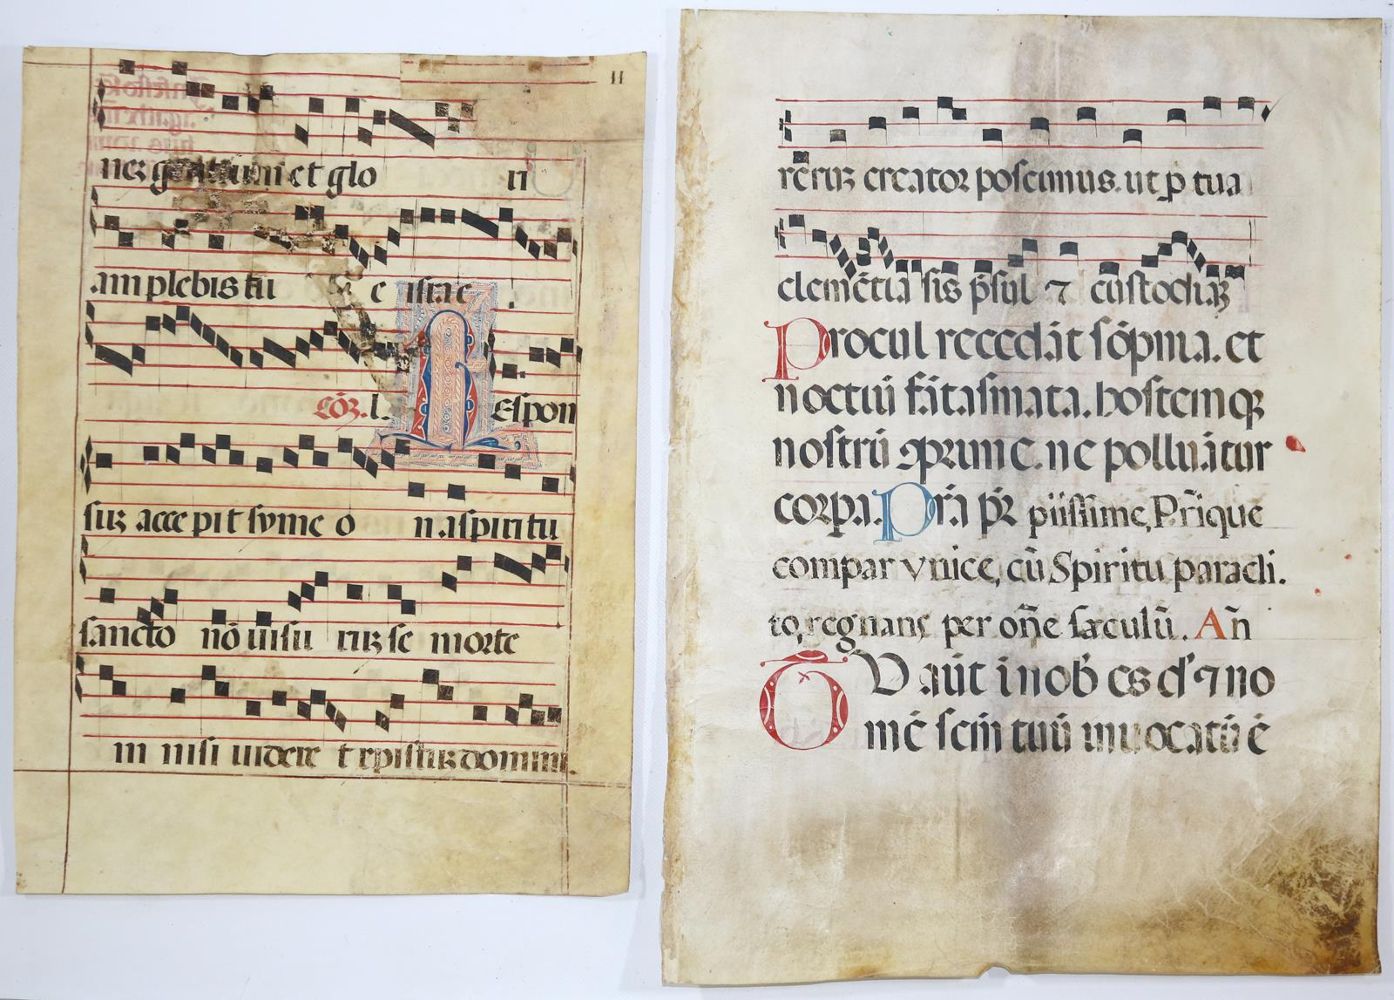 11
neꝫ gentium et glo ri
am plebis tu e israel
Cõꝫ. l. REspon
suꝫ accepit symeo n a spiritu
sancto nõ uisu ruꝫ se morte
m nisi uidere t xp̄istuꝫ domini.
rẽruꝫ creator poscimus. ut ꝑ tua
clemẽtia sis p̃sul ⁊ custodiaꝫ
Procul recedãt sõpnia. et
noctiũ fãtasmata. hostemqꝫ
nostrũ ꝯprime. ne polluãtur
corpa. Pr̃a pr̃ piissime, Pr̃ique
compar vnice, cũ Spiritu paracli.
to, regnans per oñe sæculũ. Añ
OV aũt i nob̃ es d' ⁊ no
mẽ scm̃ tuũ inuocatũ ẽ